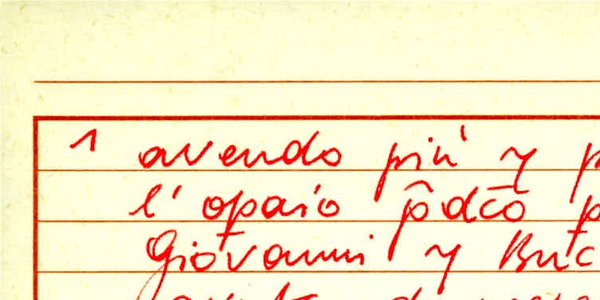 1 avendo più y p
l' opaio p̂dc̄o p
Giovanni y Buc